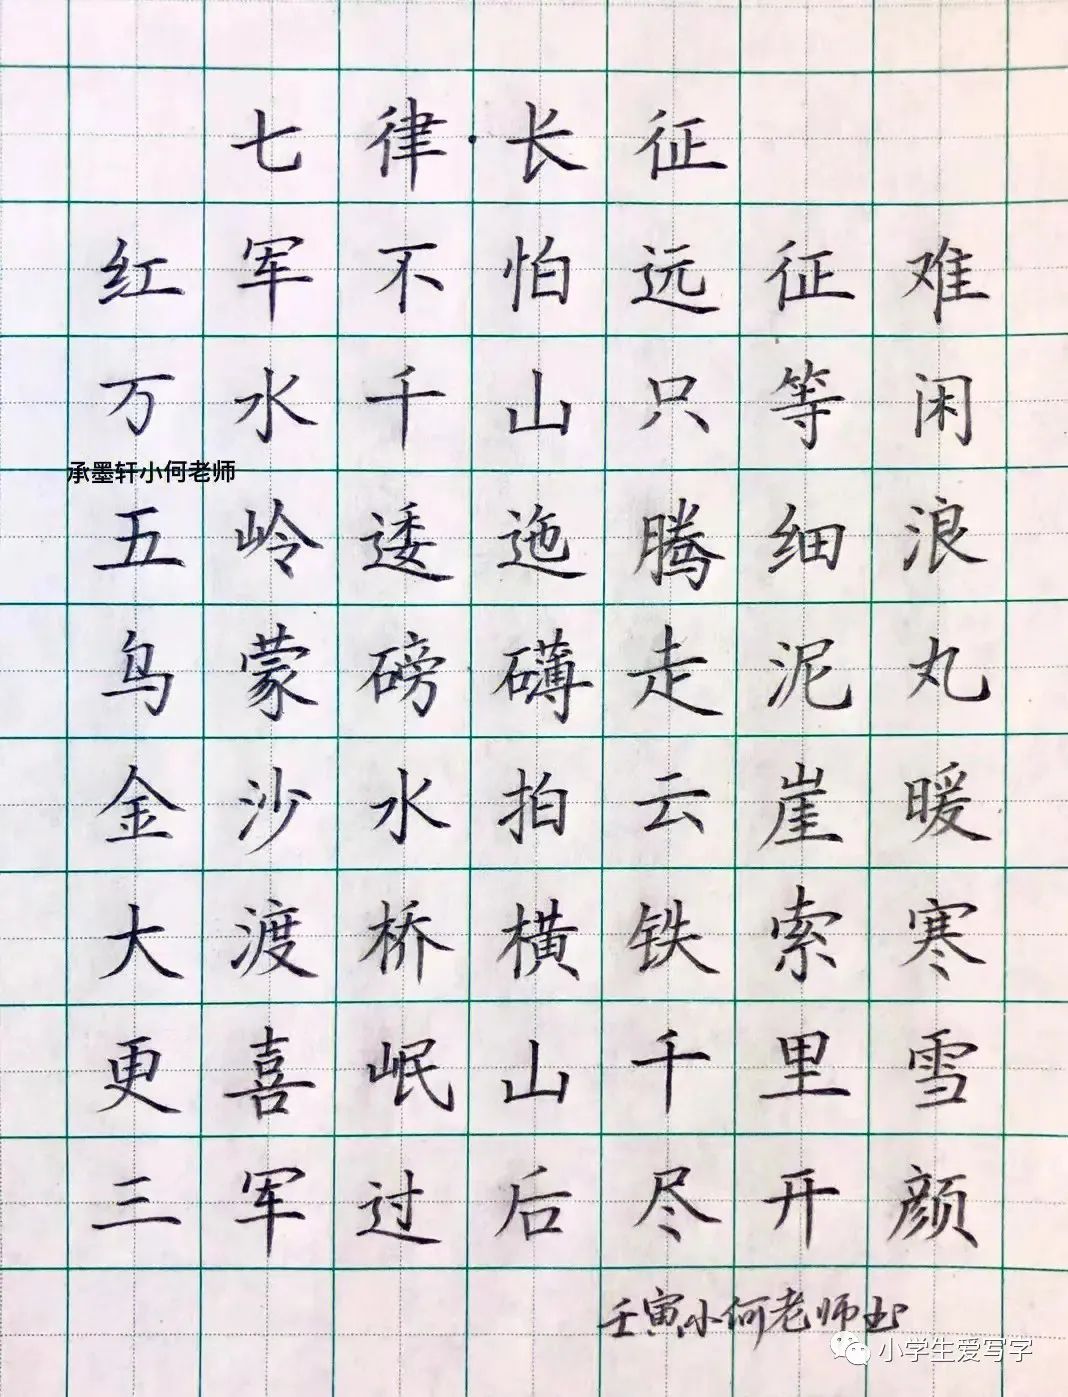 七律·长征
红军不怕远征难
万水千山只等闲
承墨轩小何老师
五岭逶迤腾细浪
乌蒙磅礴走泥丸
金沙水拍云崖暖
大渡桥横铁索寒
更喜岷山千里雪
三军过后尽开颜
壬寅小何老师书
小学生爱写字